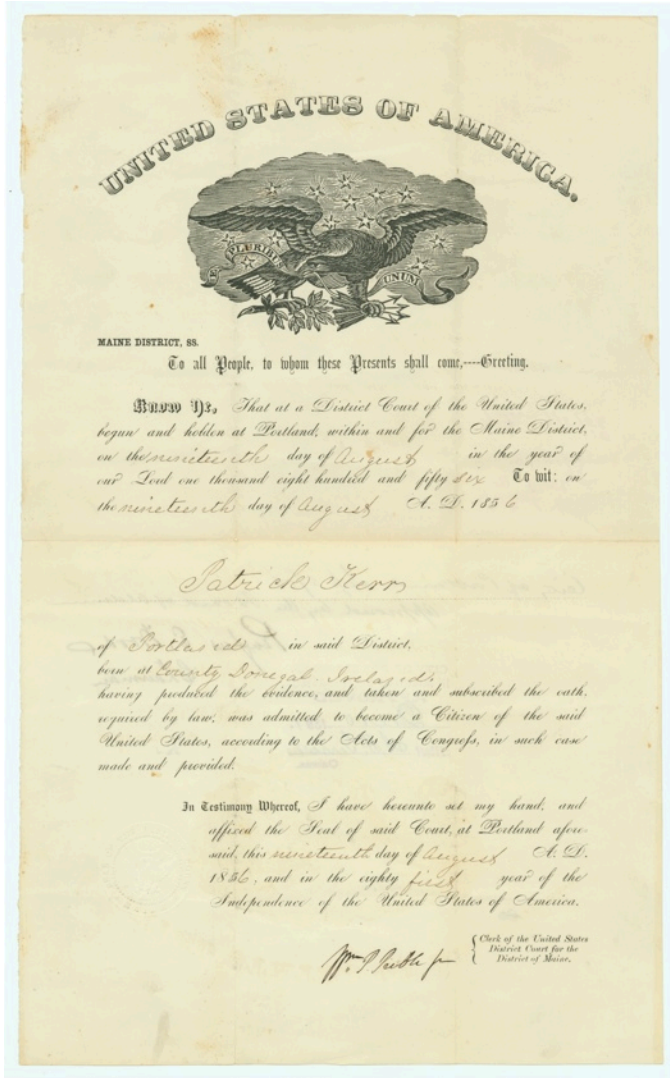 UNITED STATES OF AMERICA.
E PLURIBUS UNUM
MAINE DISTRICT, SS.
To all People, to whom these Presents shall come,----Greeting.
Know Ye, That at a District Court of the United States,
begun and holden at Portland, within and for the Maine District,
on the nineteenth day of August in the year of
our Lord one thousand eight hundred and fifty six To wit: on
the nineteenth day of August A. D. 1856
Patrick Kerr
of Portland in said District,
born at County Donegal Ireland.
having produced the evidence, and taken and subscribed the oath,
required by law, was admitted to become a Citizen of the said
United States, according to the Acts of Congress, in such case
made and provided.
In Testimony Whereof, I have hereunto set my hand, and
affixed the Seal of said Court, at Portland afore-
said, this nineteenth day of August A. D.
1856, and in the eighty first year of the
Independence of the United States of America.
Wm. P. Preble jr
Clerk of the United States
District Court for the
District of Maine.